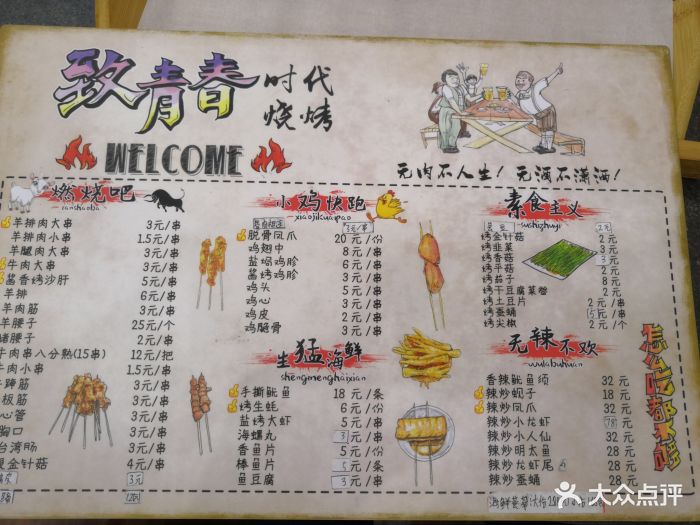 致青春
时代
烧烤
WELCOME
无肉不人生！无酒不潇洒！
燃烧吧
ranshaoba
羊排肉大串 3元/串
羊排肉小串 1.5元/串
羊腿肉大串 3元/串
牛肉大串 3元/串
酱香烤沙肝 5元/串
羊排 6元/串
羊肉筋 3元/串
羊腰子 25元/个
猪腰子 2元/串
牛肉串八分熟(15串) 12元/把
牛肉小串 1.5元/串
牛蹄筋 3元/串
板筋 3元/串
心管 3元/串
胸口 3元/串
台湾肠 3元/串
金针菇 4元/串
3元
小鸡快跑
xiaojikuaipao
3元/串
脱骨凤爪 20元/份
鸡翅中 8元/串
盐焗鸡胗 6元/串
酱烤鸡胗 6元/串
鸡头 3元/串
鸡心 3元/串
鸡皮 2元/串
鸡腿骨 3元/串
生猛海鲜
shengmenghaixian
手撕鱿鱼 18元/条
烤生蚝 6元/份
盐烤大虾 5元/串
海螺丸 3元/串
香鱼片 5元/串
棒鱼片 5元/条
鱼豆腐 3元/串
素食主义
sushizhuyi
2元
烤金针菇 2元
烤韭菜 2元
烤香菇 3元
烤平菇 2元
烤茄子 8元
烤干豆腐菜卷 2元
烤土豆片 2元/串
烤蚕蛹 5元/串
烤尖椒 2元/个
无辣不欢
wulabuhuan
香辣鱿鱼须 32元
辣炒蚬子 18元
辣炒凤爪 32元
辣炒小龙虾 78元
辣炒小人仙 32元
辣炒明太鱼 28元
辣炒龙虾尾 58元
辣炒蚕蛹 28元
怎么吃都不够
大众点评